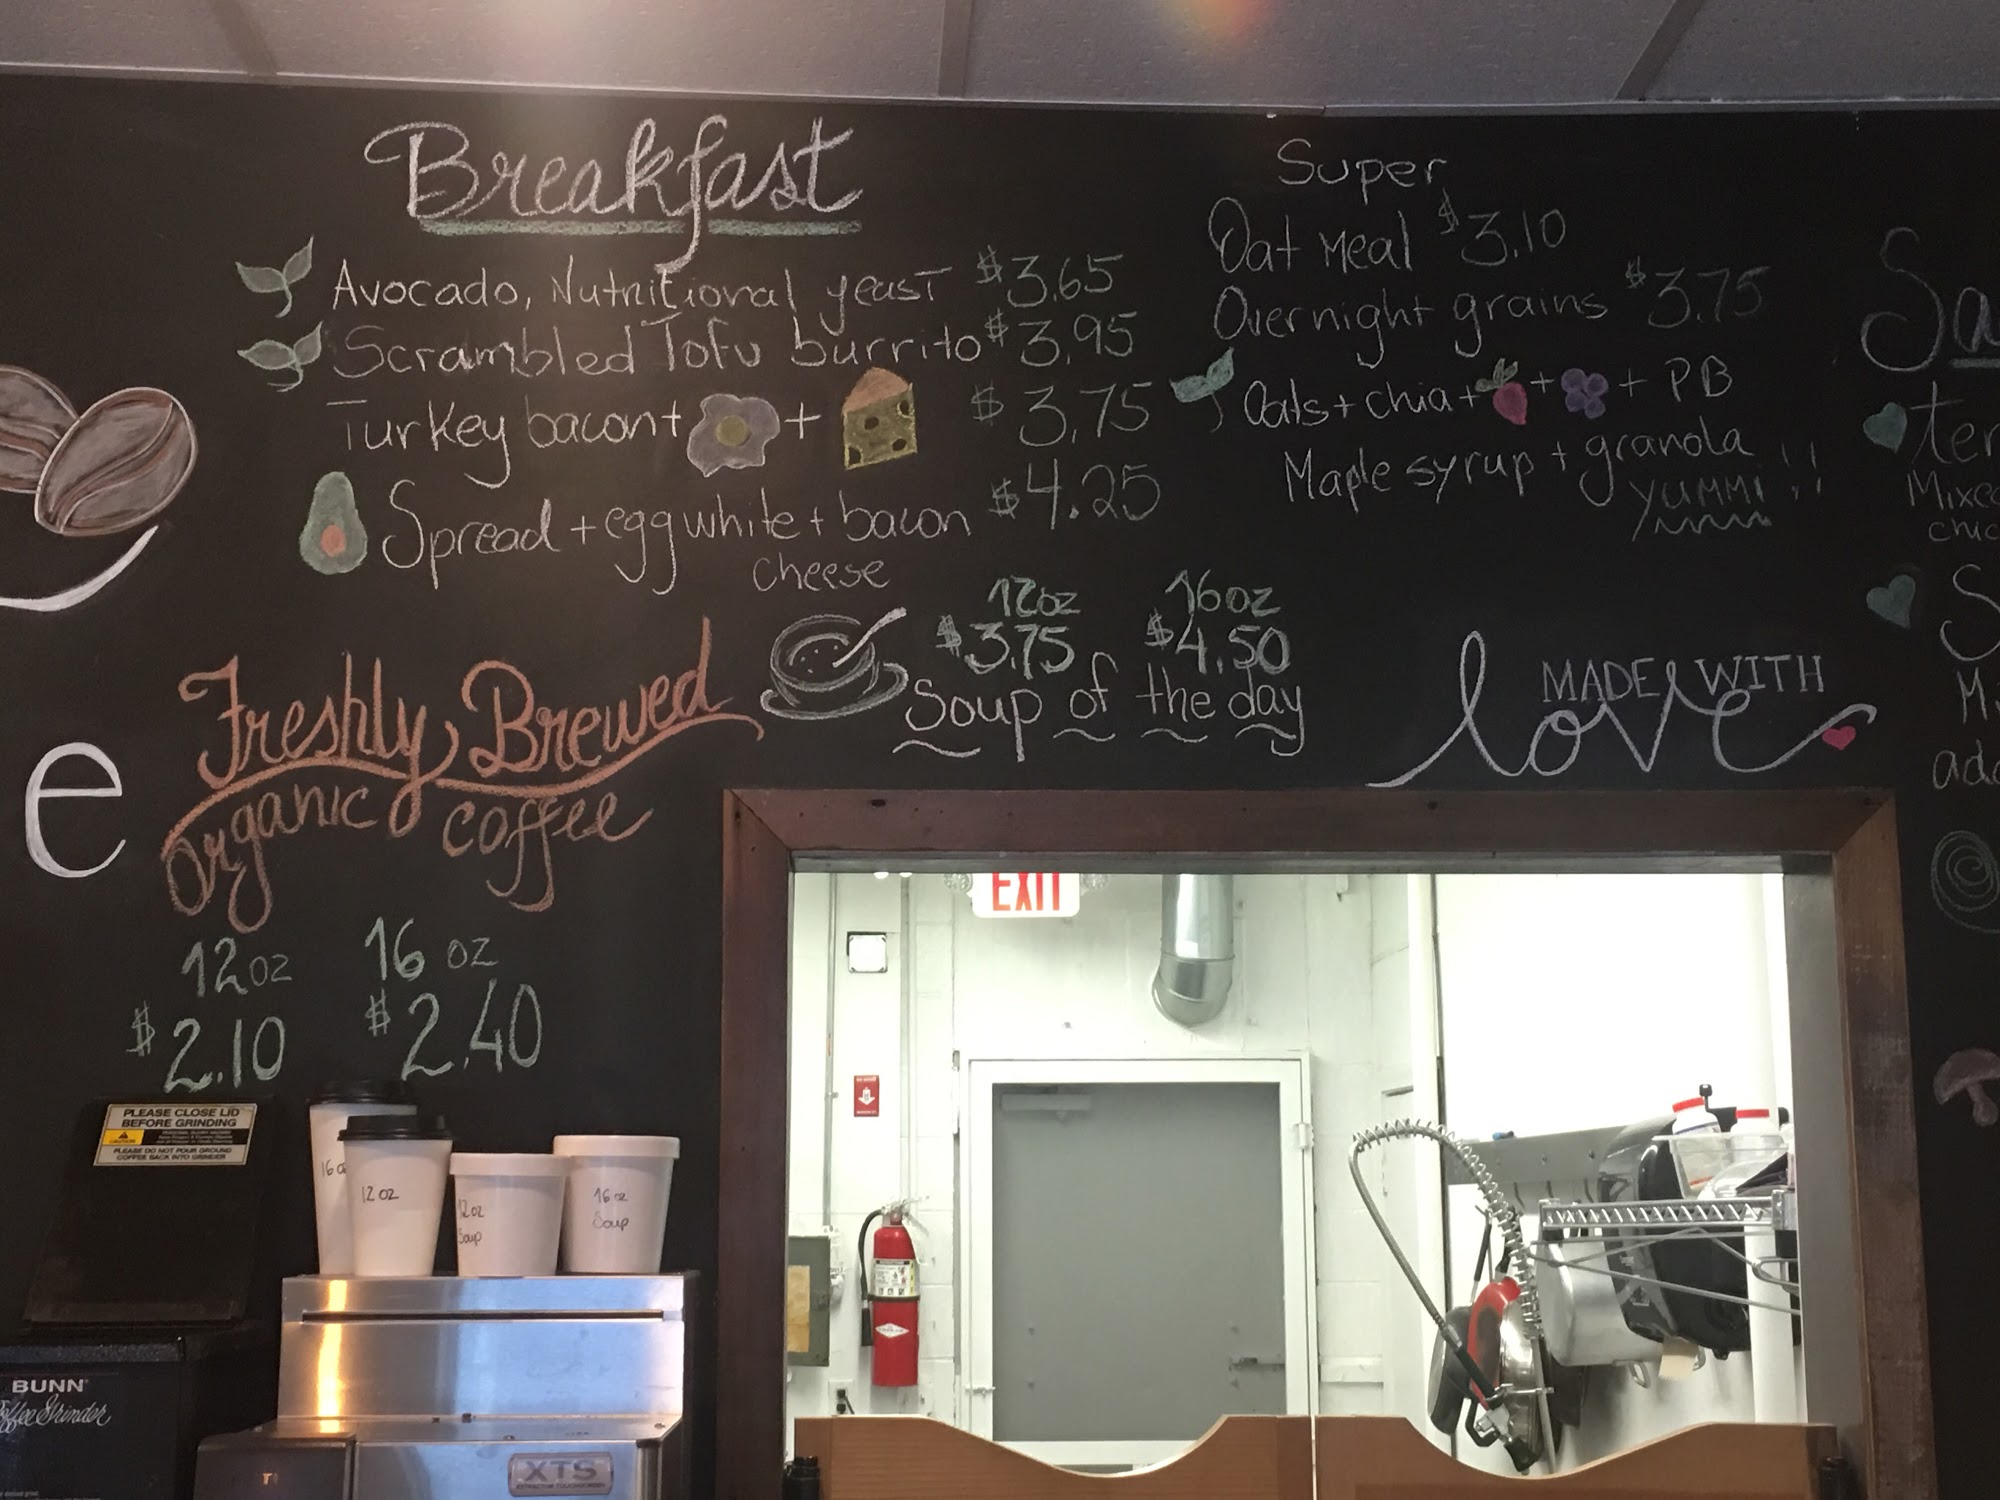 Breakfast
Avocado, Nutritional yeast $3.65
Scrambled Tofu burrito $3.95
Turkey bacon + + $3.75
Spread + egg white + bacon $4.25
cheese
Super
Oat Meal $3.10
Overnight grains $3.75
Oats + chia + + + PB
Maple syrup + granola
YUMMI!!
12oz 16oz
$3.75 $4.50
Soup of the day
MADE WITH
love
Freshly Brewed
Organic coffee
12oz 16 oz
$2.10 $2.40
e
Sa
ter
Mixe
chic
S
M
add
EXIT
PLEASE CLOSE LID
BEFORE GRINDING
CAUTION
PLEASE DO NOT POUR GROUND
COFFEE BACK INTO GRINDER
16 oz
12 oz
12oz
Soup
16 oz
Soup
BUNN
Coffee Grinder
XTS
EXTRACTOR TOUCHSCREEN